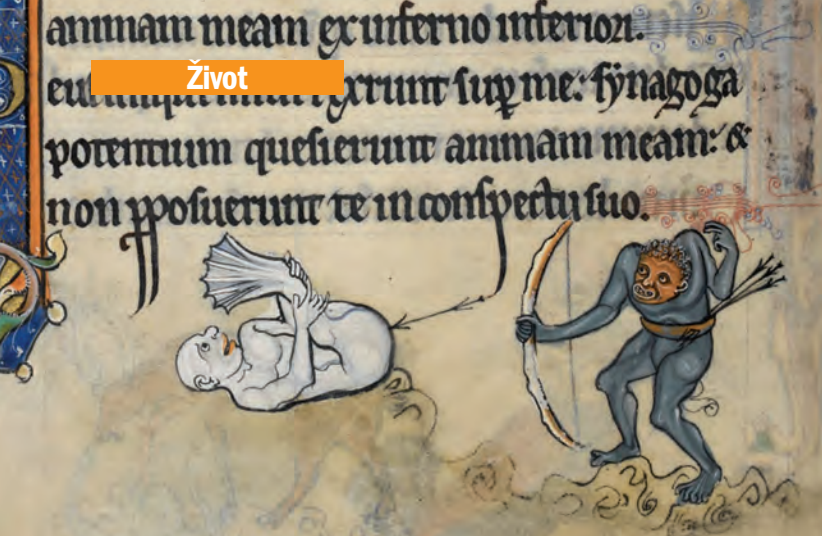 animam meam ex inferno inferiori.
Život
eu rexrunt sup me: synagoga
potentium quesierunt animam meam: &
non pposuerunt te in conspectu suo.